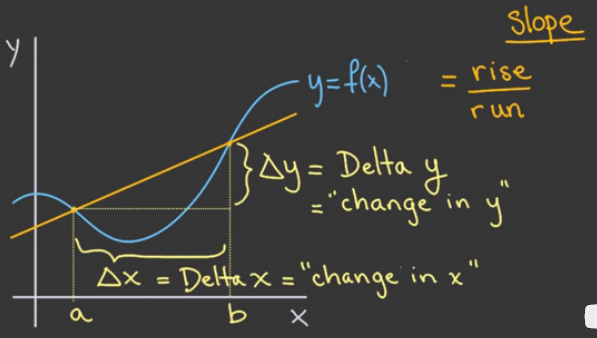 Slope
= rise
run
y
y=f(x)
Δy = Delta y
= "change in y"
Δx = Delta x = "change in x"
a
b
x